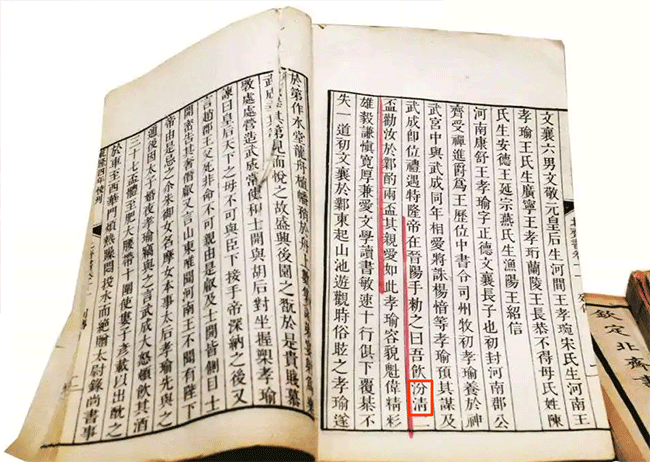 文襄六男文敬元皇后生河間王孝琬宋氏生河南王
孝瑜王氏生廣寧王孝珩蘭陵王長恭不得母氏姓陳
氏生安德王延宗燕氏生漁陽王紹信
河南康舒王孝瑜字正德文襄長子也初封河南郡公
齊受禪進爵爲王歷位中書令司州牧初孝瑜養於神
武宮中與武成同年相愛將誅楊愔等孝瑜預其謀及
武成即位禮遇特隆帝在晉陽手勑之曰吾飲汾清二
盃勸汝於鄴酌兩盃其親愛如此孝瑜容貌魁偉精彩
雄毅謙慎寬厚兼愛文學讀書敏速十行俱下覆棊不
失一道初文襄於鄴東起山池遊觀時俗眩之孝瑜遂
於第作水堂龍舟植幡矟於舟上數集諸弟宴射爲樂
武成幸其第見而悅之故盛興後園之翫於是貴賤慕
斆處處營造武成常使和士開與胡后對坐握槊孝瑜
諫曰皇后天下之母不可與臣下接手帝深納之後又
言趙郡王父死非命不可親由是叡及士開皆側目士
開密告其奢僭叡又言山東唯聞河南王不聞有陛下
帝由是忌之尒朱御女名摩女本事太后孝瑜先與之
通後因太子婚夜孝瑜竊與之言武成大怒頓飲其酒
三十七盃體至肥大腰帶十圍使婁子彥載以出酖之
於車至西華門煩熱躁悶投水而絕贈太尉錄尚書事
欽定北齊書